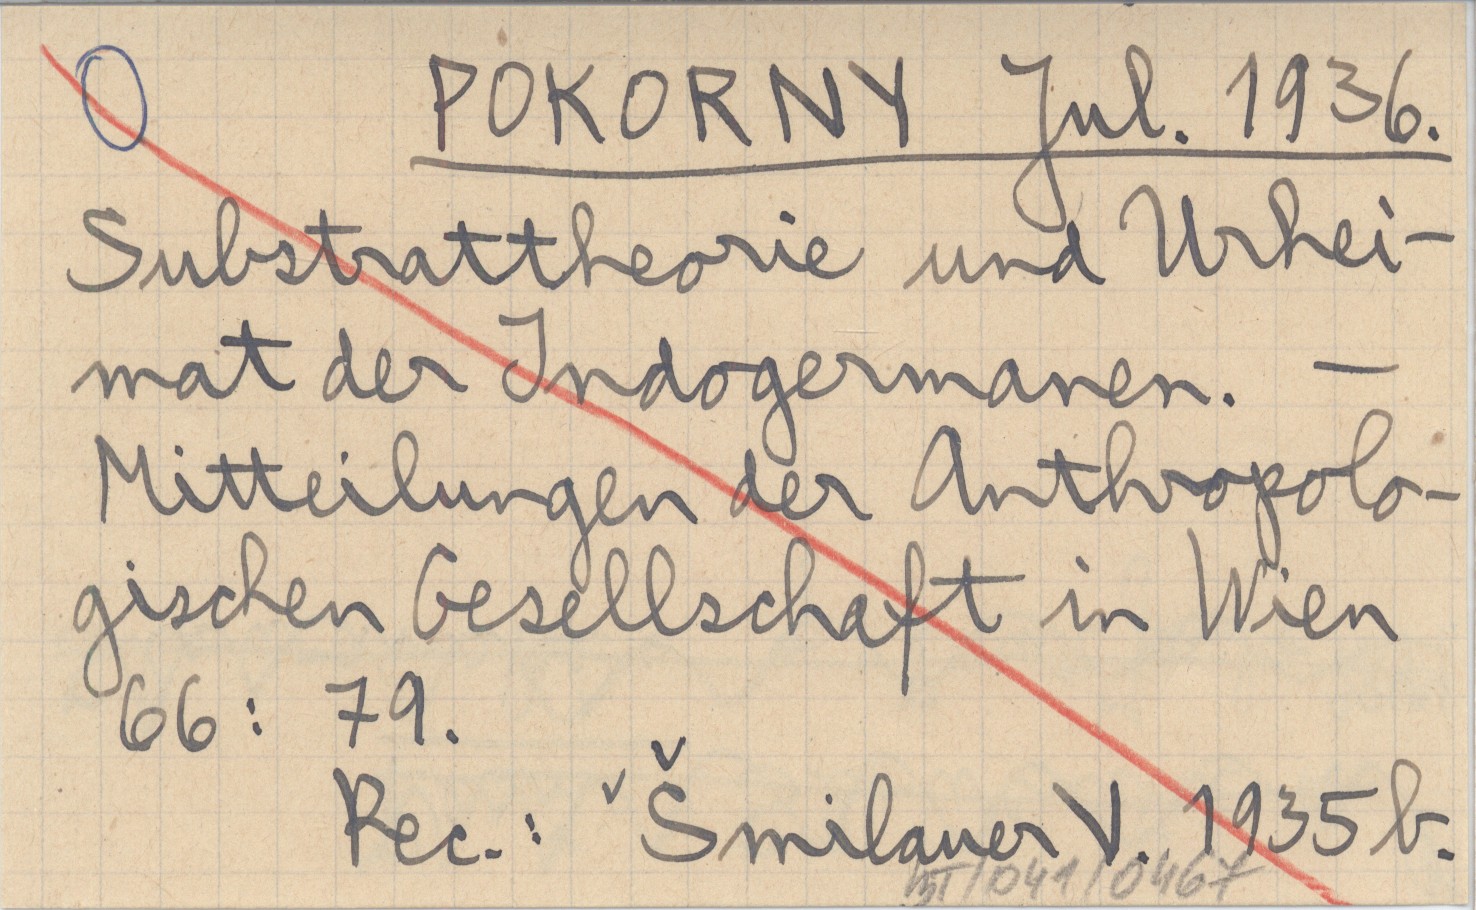 POKORNY Jul. 1936.
Substrattheorie und Urhei-
mat der Indogermanen. –
Mitteilungen der Anthropolo-
gischen Gesellschaft in Wien
66: 79.
Rec.: Šmilauer V. 1935b.
/041/0467